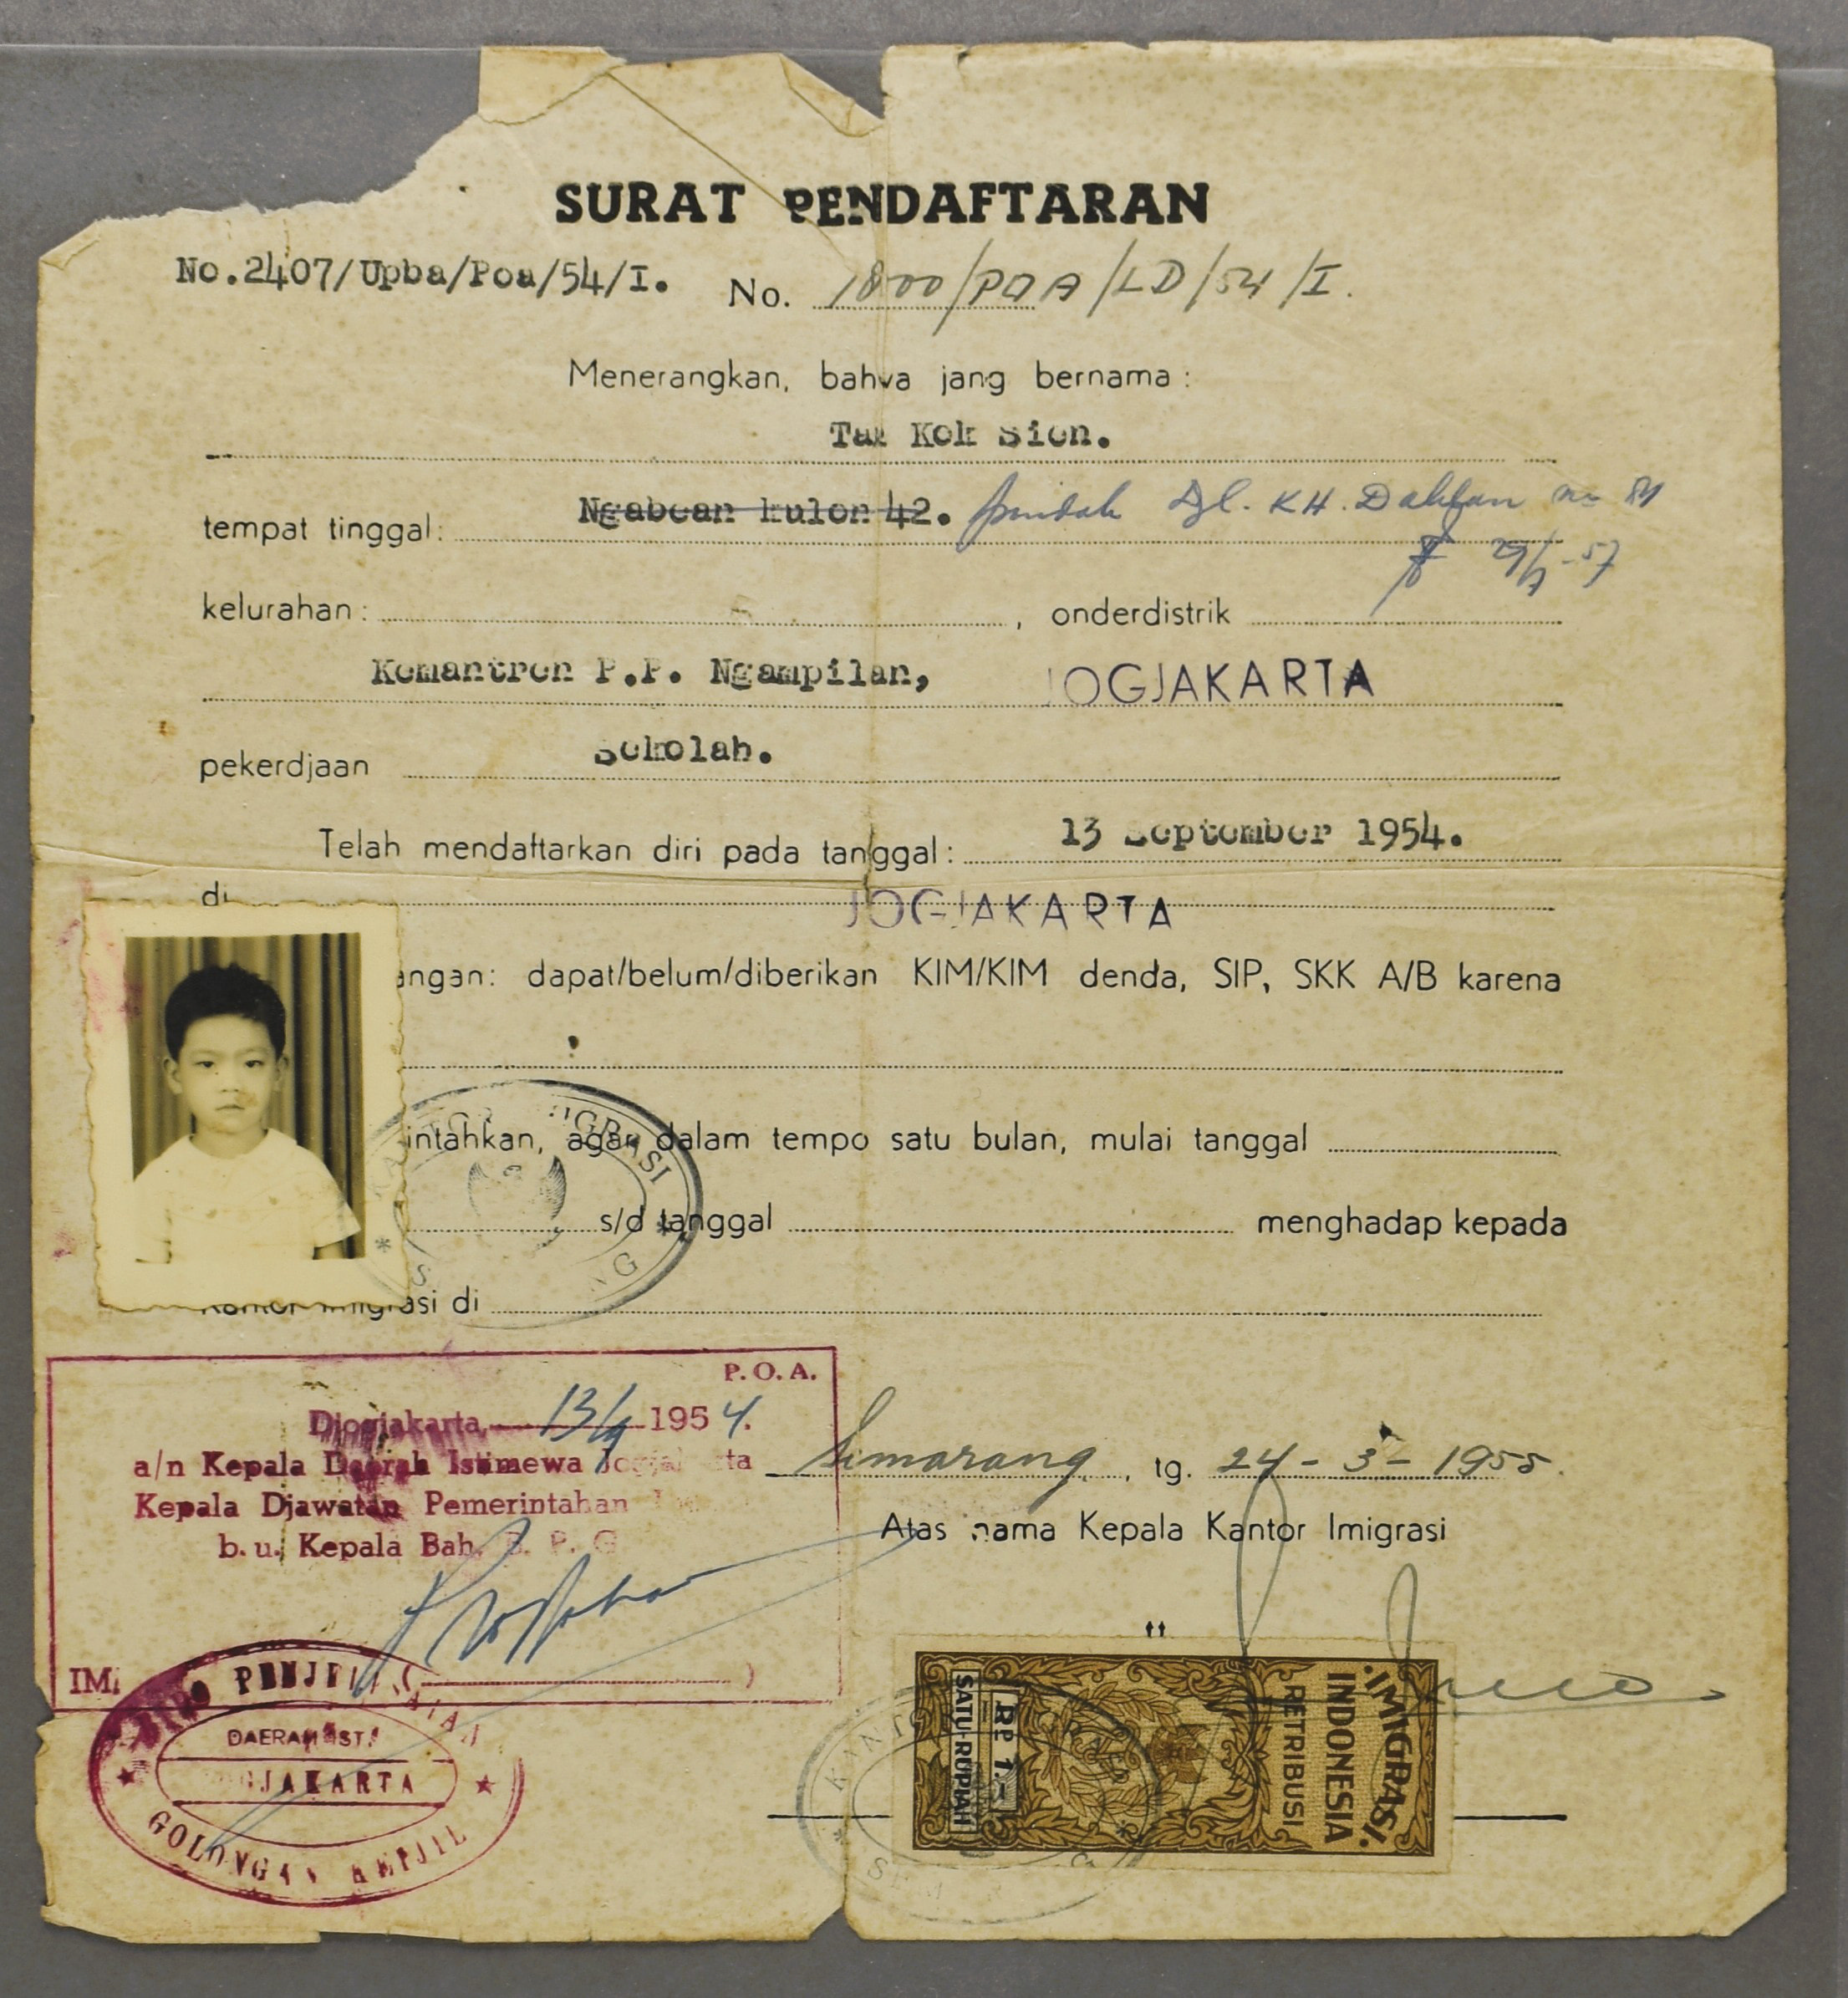 SURAT PENDAFTARAN
No.2407/Upba/Poa/54/I. No. 1800/POA/LD/54/I.
Menerangkan, bahwa jang bernama :
Tan Kok Sien.
tempat tinggal: Ngabean kulon 42. pindah Djl. KH. Dahlan no 81
29/7-57
kelurahan : , onderdistrik
Kemantren P.P. Ngampilan, JOGJAKARTA
pekerdjaan Sekolah.
Telah mendaftarkan diri pada tanggal : 13 September 1954.
di JOGJAKARTA
angan: dapat/belum/diberikan KIM/KIM denda, SIP, SKK A/B karena
intahkan, agar dalam tempo satu bulan, mulai tanggal
s/d tanggal menghadap kepada
Kantor Imigrasi di
P.O.A.
Djogjakarta, 13/9 1954.
a/n Kepala Daerah Istimewa Jogjakarta
Kepala Djawatan Pemerintahan
b. u. Kepala Bah. B. P. G
Semarang, tg. 24-3-1955.
Atas nama Kepala Kantor Imigrasi
tt
IMIGRASI.
INDONESIA
RETRIBUSI
RP 1.-
SATU-RUPIAH
DAERAH IST.
JOGJAKARTA
GOLONGAN KETJIL